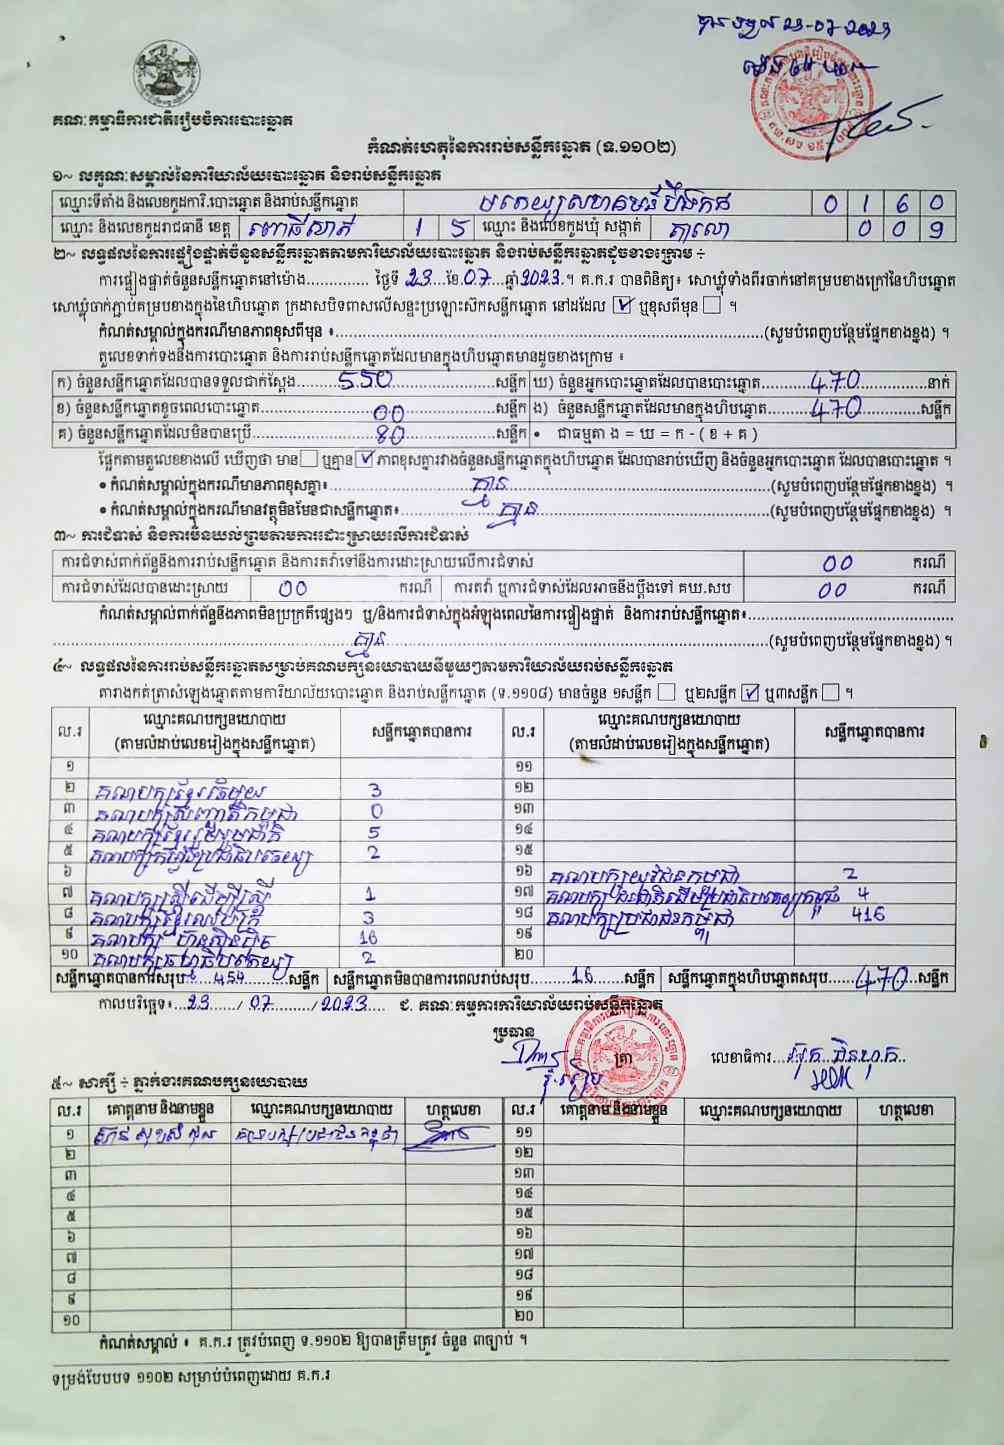 បានទទួល 23-07-2023
គណៈកម្មាធិការជាតិរៀបចំការបោះឆ្នោត
កំណត់ហេតុនៃការរាប់សន្លឹកឆ្នោត (ទ.១១០២)
១~ លក្ខណៈសម្គាល់នៃការិយាល័យបោះឆ្នោត និងរាប់សន្លឹកឆ្នោត
ឈ្មោះទីតាំង និងលេខកូដការិ.បោះឆ្នោត និងរាប់សន្លឹកឆ្នោត មត្តេយ្យសហគមន៍បឹងកក់ 0 1 6 0
ឈ្មោះ និងលេខកូដរាជធានី ខេត្ត ពោធិ៍សាត់ 1 5 ឈ្មោះ និងលេខកូដឃុំ សង្កាត់ តាលោ 0 0 9
២~ លទ្ធផលនៃការផ្ទៀងផ្ទាត់ចំនួនសន្លឹកឆ្នោតតាមការិយាល័យបោះឆ្នោត និងរាប់សន្លឹកឆ្នោតដូចខាងក្រោម ÷
ការផ្ទៀងផ្ទាត់ចំនួនសន្លឹកឆ្នោតនៅម៉ោង.............. ថ្ងៃទី 23 ខែ 07 ឆ្នាំ 2023 ។ គ.ក.រ បានពិនិត្យ៖ សោឃ្លុំទាំងពីរចាក់នៅគម្របខាងក្រៅនៃហិបឆ្នោត
សោឃ្លុំចាក់ភ្ជាប់គម្របខាងក្នុងនៃហិបឆ្នោត ក្រដាសបិទពាសលើសន្ទះប្រឡោះស៊កសន្លឹកឆ្នោត នៅដដែល ☑ ឬខុសពីមុន ☐ ។
កំណត់សម្គាល់ក្នុងករណីមានភាពខុសពីមុន ៖..............(សូមបំពេញបន្ថែមផ្នែកខាងខ្នង) ។
តួលេខទាក់ទងនឹងការបោះឆ្នោត និងការរាប់សន្លឹកឆ្នោតដែលមានក្នុងហិបឆ្នោតមានដូចខាងក្រោម ៖
ក) ចំនួនសន្លឹកឆ្នោតដែលបានទទួលជាក់ស្តែង 550 សន្លឹក ឃ) ចំនួនអ្នកបោះឆ្នោតដែលបានបោះឆ្នោត 470 នាក់
ខ) ចំនួនសន្លឹកឆ្នោតខូចពេលបោះឆ្នោត 00 សន្លឹក ង) ចំនួនសន្លឹកឆ្នោតដែលមានក្នុងហិបឆ្នោត 470 សន្លឹក
គ) ចំនួនសន្លឹកឆ្នោតដែលមិនបានប្រើ 80 សន្លឹក • ជាធម្មតា ង = ឃ = ក - ( ខ + គ )
ផ្អែកតាមតួលេខខាងលើ ឃើញថា មាន ☐ ឬគ្មាន ☑ ភាពខុសគ្នារវាងចំនួនសន្លឹកឆ្នោតក្នុងហិបឆ្នោត ដែលបានរាប់ឃើញ និងចំនួនអ្នកបោះឆ្នោត ដែលបានបោះឆ្នោត ។
• កំណត់សម្គាល់ក្នុងករណីមានភាពខុសគ្នា៖ គ្មាន (សូមបំពេញបន្ថែមផ្នែកខាងខ្នង) ។
• កំណត់សម្គាល់ក្នុងករណីមានវត្ថុមិនមែនជាសន្លឹកឆ្នោត៖ គ្មាន (សូមបំពេញបន្ថែមផ្នែកខាងខ្នង) ។
៣~ ការជំទាស់ និងការមិនយល់ព្រមតាមការដោះស្រាយលើការជំទាស់
ការជំទាស់ពាក់ព័ន្ធនឹងការរាប់សន្លឹកឆ្នោត និងការតវ៉ាទៅនឹងការដោះស្រាយលើការជំទាស់ 00 ករណី
ការជំទាស់ដែលបានដោះស្រាយ 00 ករណី ការតវ៉ា ឬការជំទាស់ដែលអាចនឹងប្តឹងទៅ គឃ.សប 00 ករណី
កំណត់សម្គាល់ពាក់ព័ន្ធនឹងភាពមិនប្រក្រតីផ្សេងៗ ឬ/និងការជំទាស់ក្នុងអំឡុងពេលនៃការផ្ទៀងផ្ទាត់ និងការរាប់សន្លឹកឆ្នោត៖
គ្មាន (សូមបំពេញបន្ថែមផ្នែកខាងខ្នង) ។
៤~ លទ្ធផលនៃការរាប់សន្លឹកឆ្នោតសម្រាប់គណបក្សនយោបាយនីមួយៗតាមការិយាល័យរាប់សន្លឹកឆ្នោត
តារាងកត់ត្រាសំឡេងឆ្នោតតាមការិយាល័យបោះឆ្នោត និងរាប់សន្លឹកឆ្នោត (ទ.១១០៨) មានចំនួន ១សន្លឹក ☐ ឬ២សន្លឹក ☑ ឬ៣សន្លឹក ☐ ។
ល.រ ឈ្មោះគណបក្សនយោបាយ (តាមលំដាប់លេខរៀងក្នុងសន្លឹកឆ្នោត) សន្លឹកឆ្នោតបានការ ល.រ ឈ្មោះគណបក្សនយោបាយ (តាមលំដាប់លេខរៀងក្នុងសន្លឹកឆ្នោត) សន្លឹកឆ្នោតបានការ
១ ១១
២ គណបក្សខ្មែរតែមួយ 3 ១២
៣ គណបក្សសញ្ជាតិកម្ពុជា 0 ១៣
៤ គណបក្សខ្មែររួបរួមជាតិ 5 ១៤
៥ គណបក្សកម្លាំងប្រជាធិបតេយ្យ 2 ១៥
៦ ១៦ គណបក្សយុវជនកម្ពុជា 2
៧ គណបក្សស្ត្រីដើម្បីស្ត្រី 1 ១៧ គណបក្សជនជាតិដើមប្រជាធិបតេយ្យកម្ពុជា 4
៨ គណបក្សខ្មែរឈប់ក្រ 3 ១៨ គណបក្សប្រជាជនកម្ពុជា 416
៩ គណបក្ស ហ៊្វុនស៊ិនប៉ិច 16 ១៩
១០ គណបក្សធម្មាធិបតេយ្យ 2 ២០
សន្លឹកឆ្នោតបានការសរុប 454 សន្លឹក សន្លឹកឆ្នោតមិនបានការពេលរាប់សរុប 16 សន្លឹក សន្លឹកឆ្នោតក្នុងហិបឆ្នោតសរុប 470 សន្លឹក
កាលបរិច្ឆេទ៖ 23 / 07 / 2023 ជ. គណៈកម្មការការិយាល័យរាប់សន្លឹកឆ្នោត
ប្រធាន ត្រា លេខាធិការ
៥~ សាក្សី ÷ ភ្នាក់ងារគណបក្សនយោបាយ
ល.រ គោត្តនាម និងនាមខ្លួន ឈ្មោះគណបក្សនយោបាយ ហត្ថលេខា ល.រ គោត្តនាម និងនាមខ្លួន ឈ្មោះគណបក្សនយោបាយ ហត្ថលេខា
១ គណបក្សប្រជាជនកម្ពុជា ១១
២ ១២
៣ ១៣
៤ ១៤
៥ ១៥
៦ ១៦
៧ ១៧
៨ ១៨
៩ ១៩
១០ ២០
កំណត់សម្គាល់ ៖ គ.ក.រ ត្រូវបំពេញ ទ.១១០២ ឱ្យបានត្រឹមត្រូវ ចំនួន ៣ច្បាប់ ។
ទម្រង់បែបបទ ១១០២ សម្រាប់បំពេញដោយ គ.ក.រ